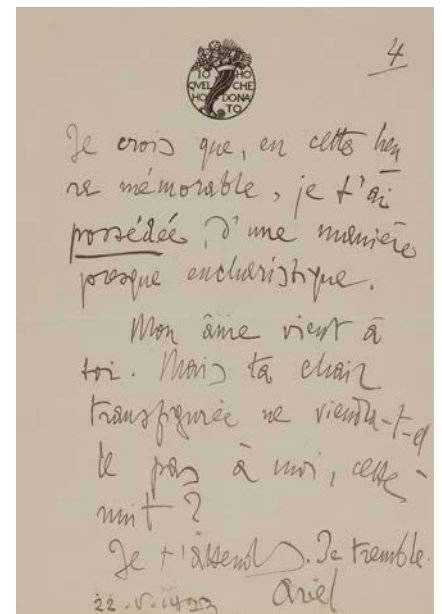 4
IO HO
QVEL CHE
HO DONA
TO
Je crois que, en cette heu
re mémorable, je t'ai
possédée, d'une manière
presque eucharistique.
Mon âme vient à
toi. Mais ta chair
transfigurée ne viendra-t-el
le pas à moi, cette
nuit ?
Je t'attends. Je tremble.
Ariel
22.V.